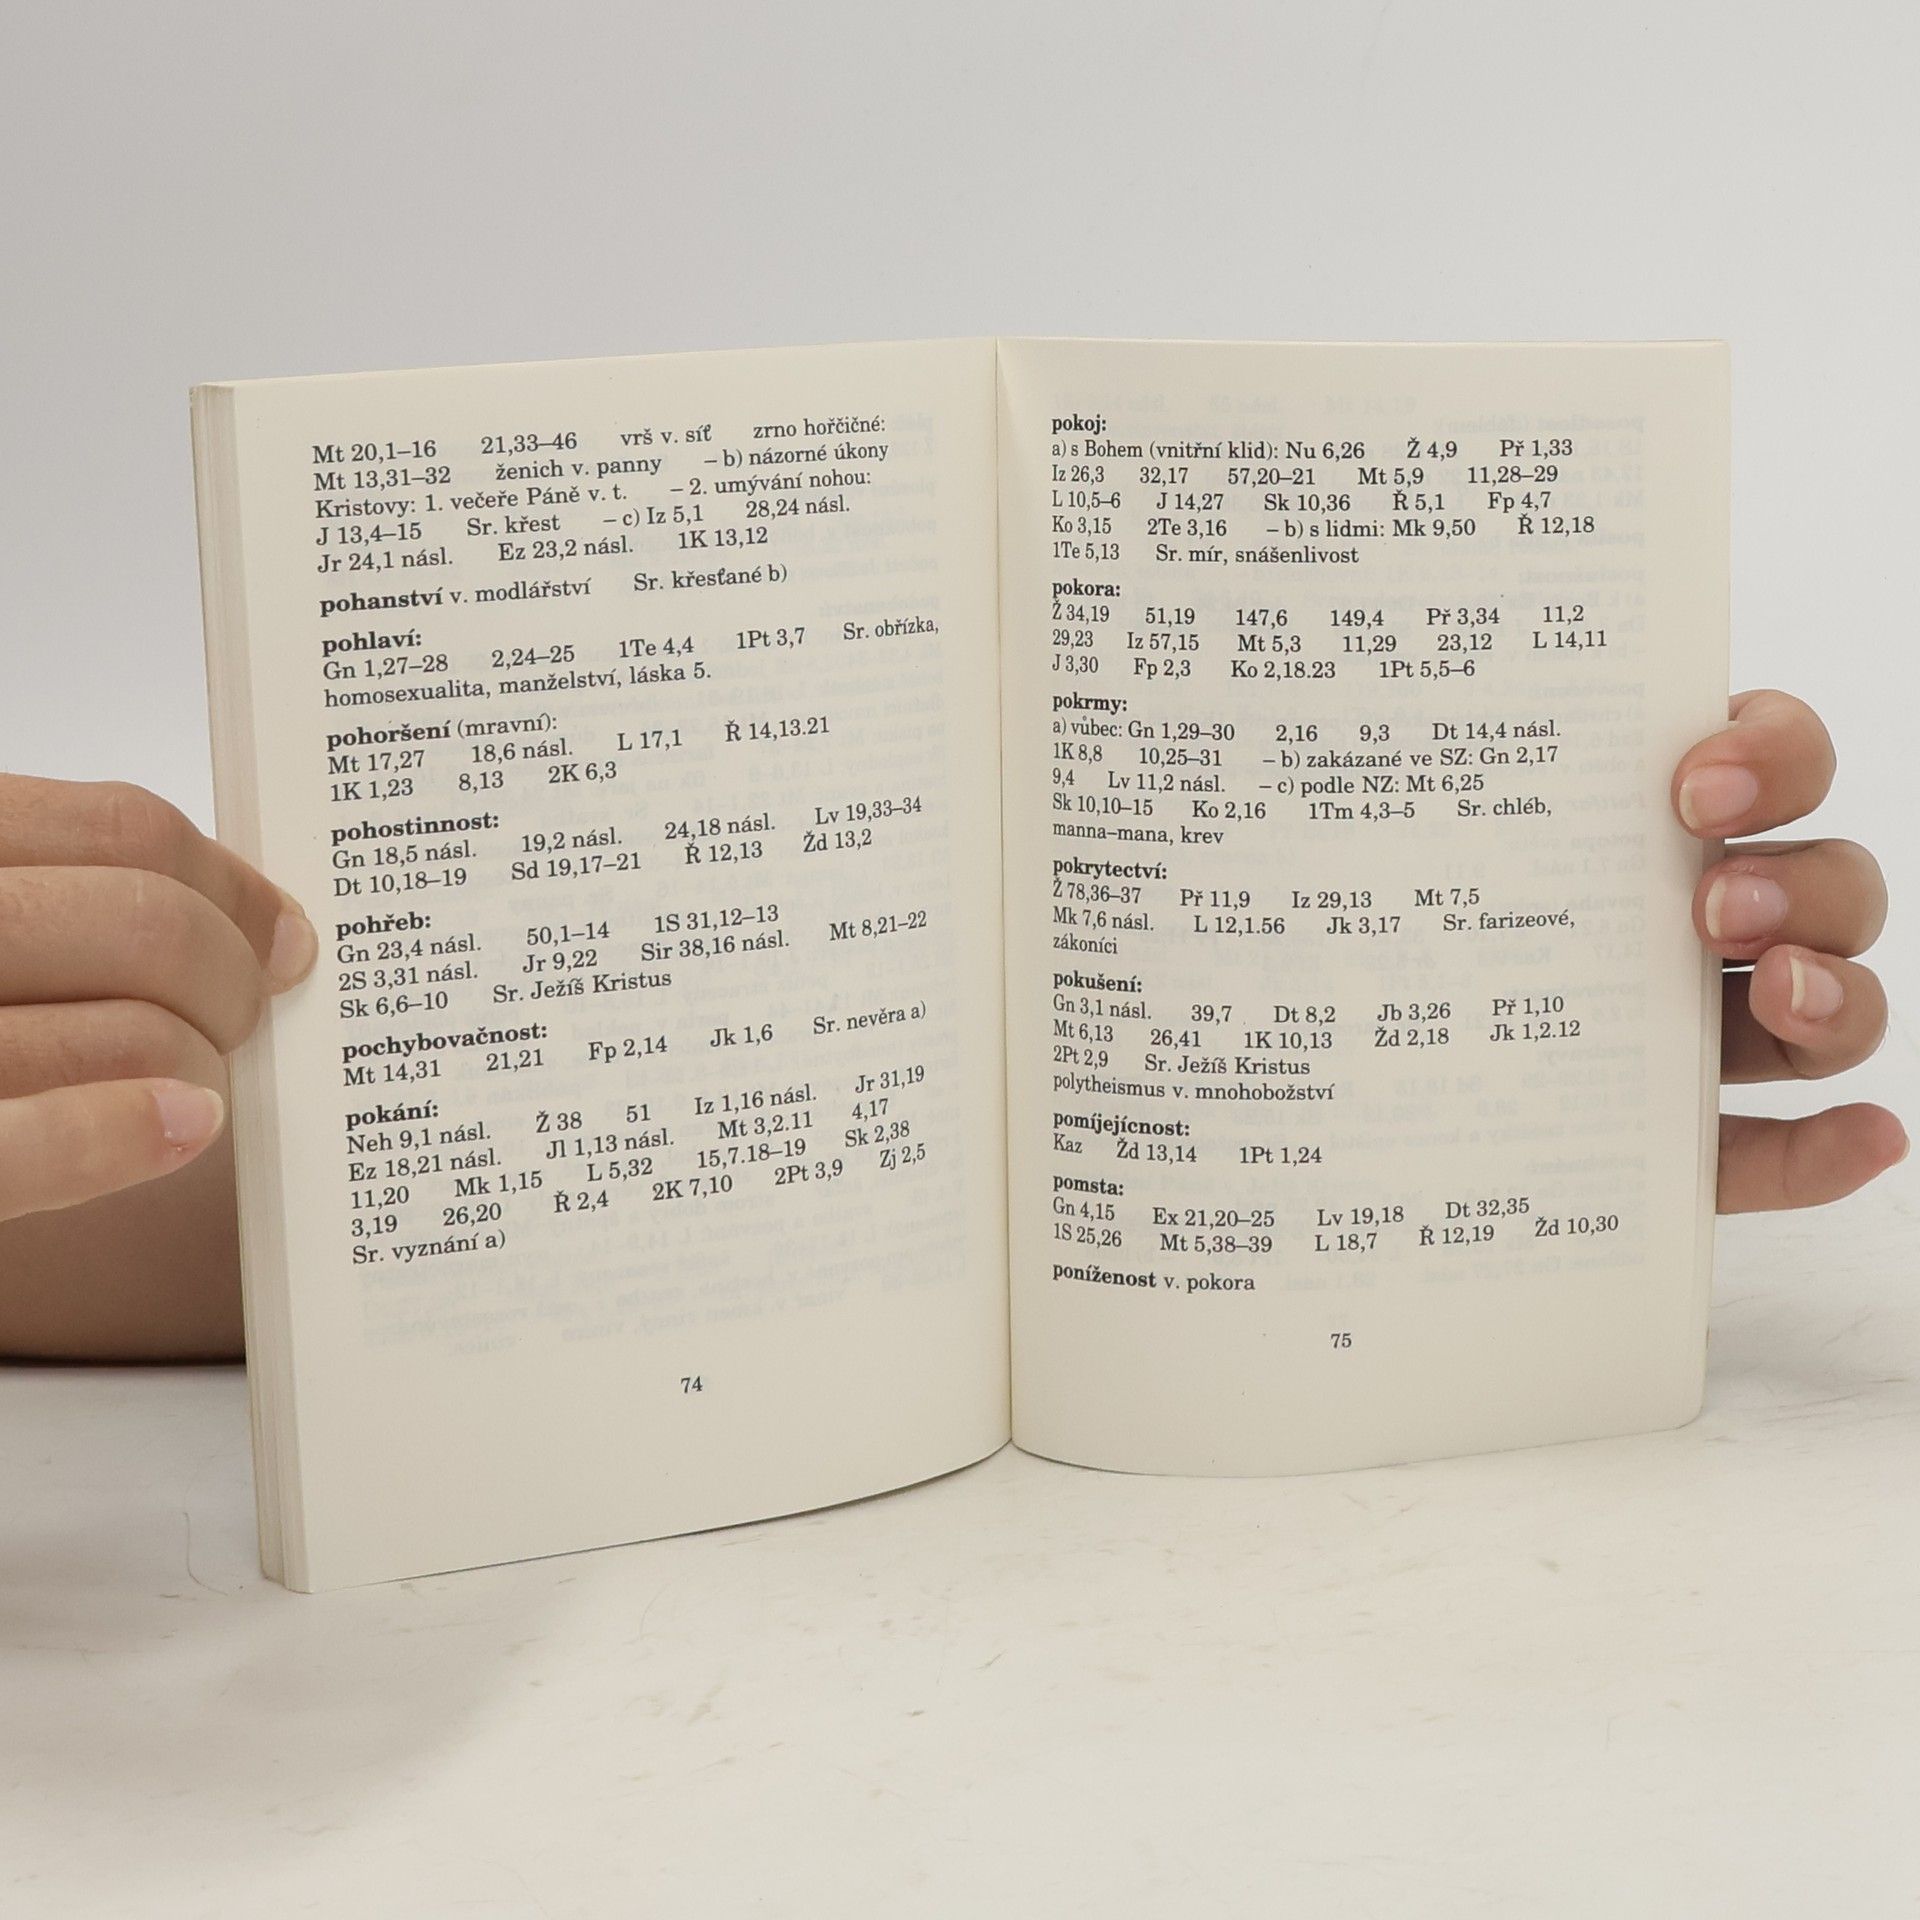 Mt 20,1–16 21,33–46 vrš v. síť zrno hořčičné:
Mt 13,31–32 ženich v. panny – b) názorné úkony
Kristovy: 1. večeře Páně v. t. – 2. umývání nohou:
J 13,4–15 Sr. křest – c) Iz 5,1 28,24 násl.
Jr 24,1 násl. Ez 23,2 násl. 1K 13,12
pohanství v. modlářství Sr. křesťané b)
pohlaví:
Gn 1,27–28 2,24–25 1Te 4,4 1Pt 3,7 Sr. obřízka,
homosexualita, manželství, láska 5.
pohoršení (mravní):
Mt 17,27 18,6 násl. L 17,1 Ř 14,13.21
1K 1,23 8,13 2K 6,3
pohostinnost:
Gn 18,5 násl. 19,2 násl. 24,18 násl. Lv 19,33–34
Dt 10,18–19 Sd 19,17–21 Ř 12,13 Žd 13,2
pohřeb:
Gn 23,4 násl. 50,1–14 1S 31,12–13
2S 3,31 násl. Jr 9,22 Sir 38,16 násl. Mt 8,21–22
Sk 6,6–10 Sr. Ježíš Kristus
pochybovačnost:
Mt 14,31 21,21 Fp 2,14 Jk 1,6 Sr. nevěra a)
pokání:
Neh 9,1 násl. Ž 38 51 Iz 1,16 násl. Jr 31,19
Ez 18,21 násl. Jl 1,13 násl. Mt 3,2.11 4,17
11,20 Mk 1,15 L 5,32 15,7.18–19 Sk 2,38
3,19 26,20 Ř 2,4 2K 7,10 2Pt 3,9 Zj 2,5
Sr. vyznání a)
74
pokoj:
a) s Bohem (vnitřní klid): Nu 6,26 Ž 4,9 Př 1,33
Iz 26,3 32,17 57,20–21 Mt 5,9 11,28–29
L 10,5–6 J 14,27 Sk 10,36 Ř 5,1 Fp 4,7
Ko 3,15 2Te 3,16 – b) s lidmi: Mk 9,50 Ř 12,18
1Te 5,13 Sr. mír, snášenlivost
pokora:
Ž 34,19 51,19 147,6 149,4 Př 3,34 11,2
29,23 Iz 57,15 Mt 5,3 11,29 23,12 L 14,11
J 3,30 Fp 2,3 Ko 2,18.23 1Pt 5,5–6
pokrmy:
a) vůbec: Gn 1,29–30 2,16 9,3 Dt 14,4 násl.
1K 8,8 10,25–31 – b) zakázané ve SZ: Gn 2,17
9,4 Lv 11,2 násl. – c) podle NZ: Mt 6,25
Sk 10,10–15 Ko 2,16 1Tm 4,3–5 Sr. chléb,
manna–mana, krev
pokrytectví:
Ž 78,36–37 Př 11,9 Iz 29,13 Mt 7,5
Mk 7,6 násl. L 12,1.56 Jk 3,17 Sr. farizeové,
zákoníci
pokušení:
Gn 3,1 násl. 39,7 Dt 8,2 Jb 3,26 Př 1,10
Mt 6,13 26,41 1K 10,13 Žd 2,18 Jk 1,2.12
2Pt 2,9 Sr. Ježíš Kristus
polytheismus v. mnohobožství
pomíjejícnost:
Kaz Žd 13,14 1Pt 1,24
pomsta:
Gn 4,15 Ex 21,20–25 Lv 19,18 Dt 32,35
1S 25,26 Mt 5,38–39 L 18,7 Ř 12,19 Žd 10,30
poníženost v. pokora
75